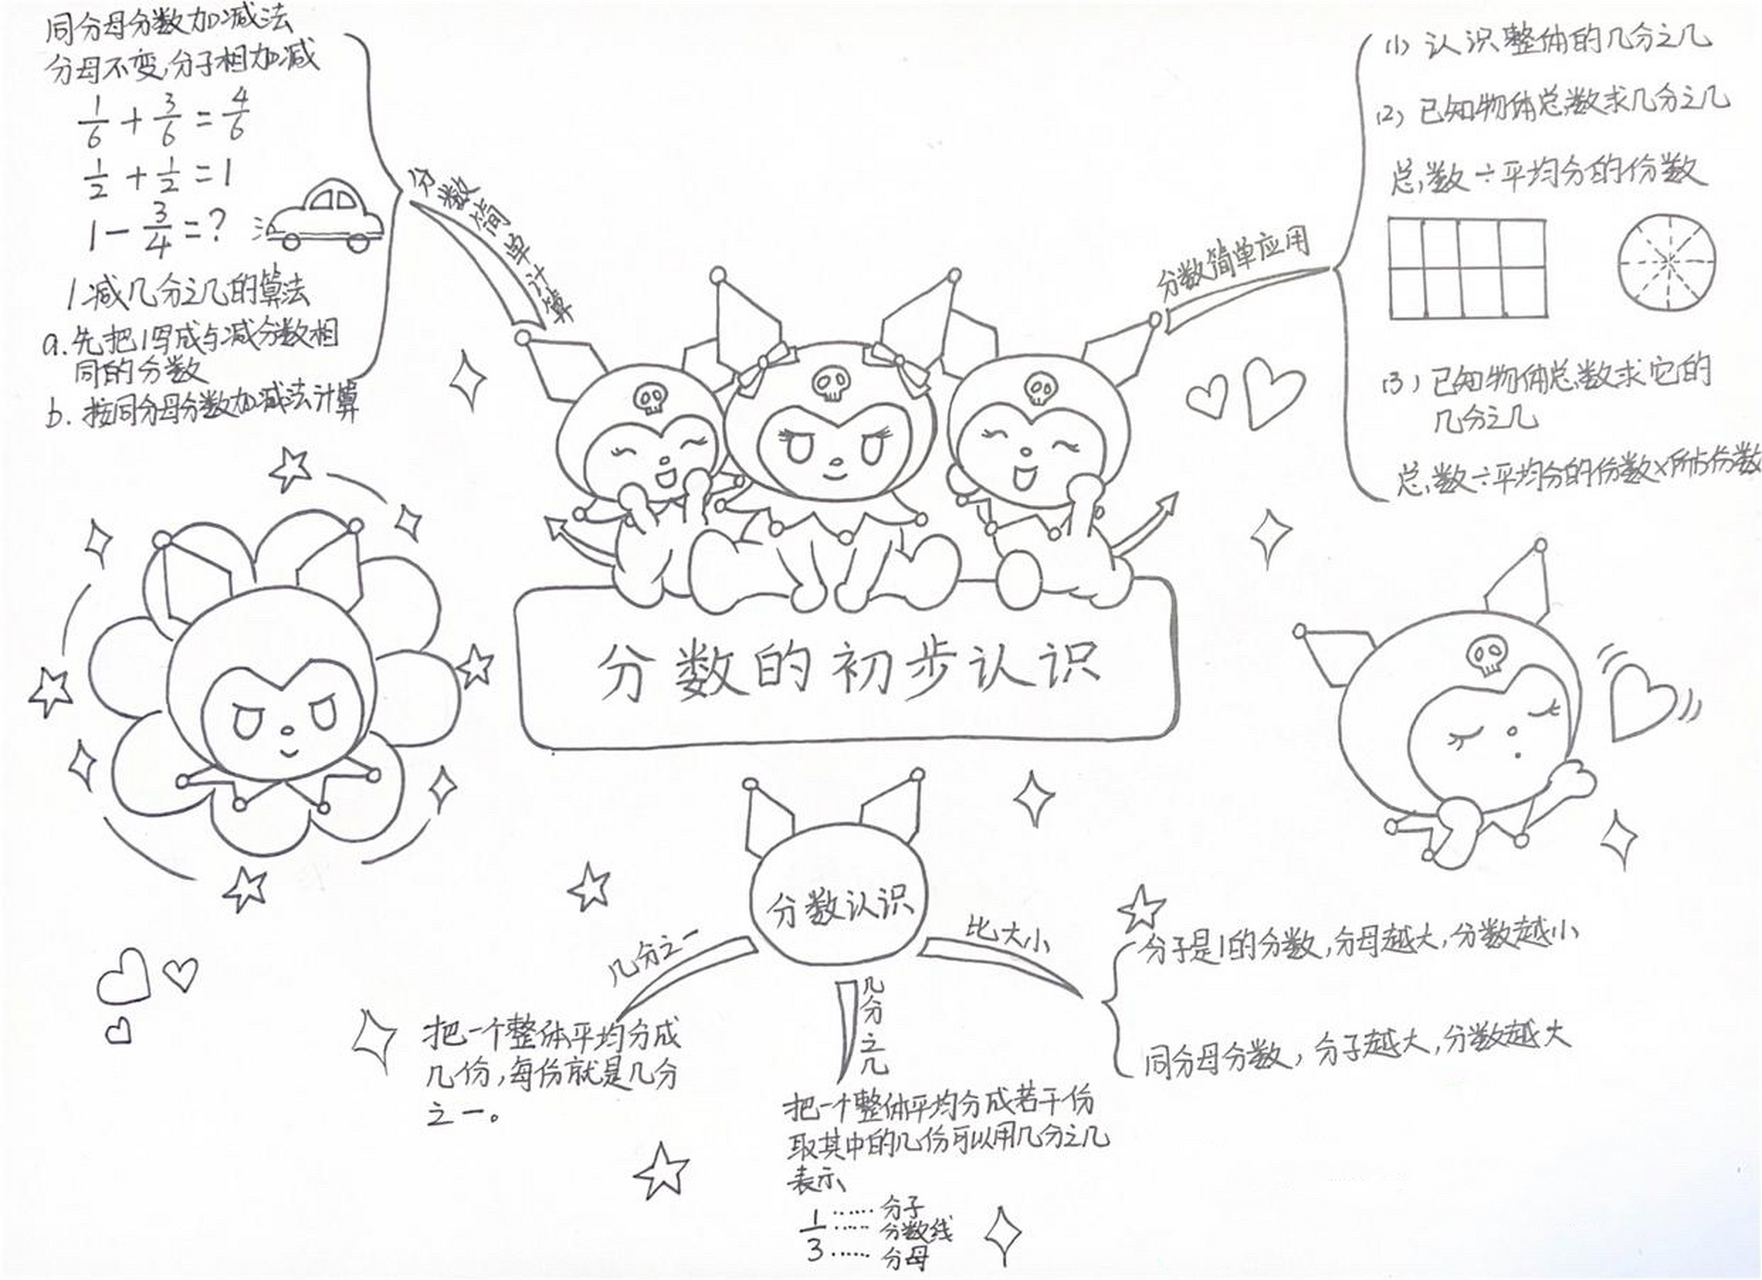 同分母分数加减法
分母不变,分子相加减
1/6 + 3/6 = 4/6
1/2 + 1/2 = 1
1 - 3/4 = ?
1减几分之几的算法
a.先把1写成与减分数相
同的分数
b.按同分母分数加减法计算
分数简单计算
分数简单应用
(1) 认识整体的几分之几
(2) 已知物体总数求几分之几
总数÷平均分的份数
(3) 已知物体总数求它的
几分之几
总数÷平均分的份数×所占份数
分数的初步认识
分数认识
几分之一
把一个整体平均分成
几份,每份就是几分
之一。
几分之几
把一个整体平均分成若干份
取其中的几份可以用几分之几
表示
1 …… 分子
— …… 分数线
3 …… 分母
比大小
分子是1的分数,分母越大,分数越小
同分母分数,分子越大,分数越大